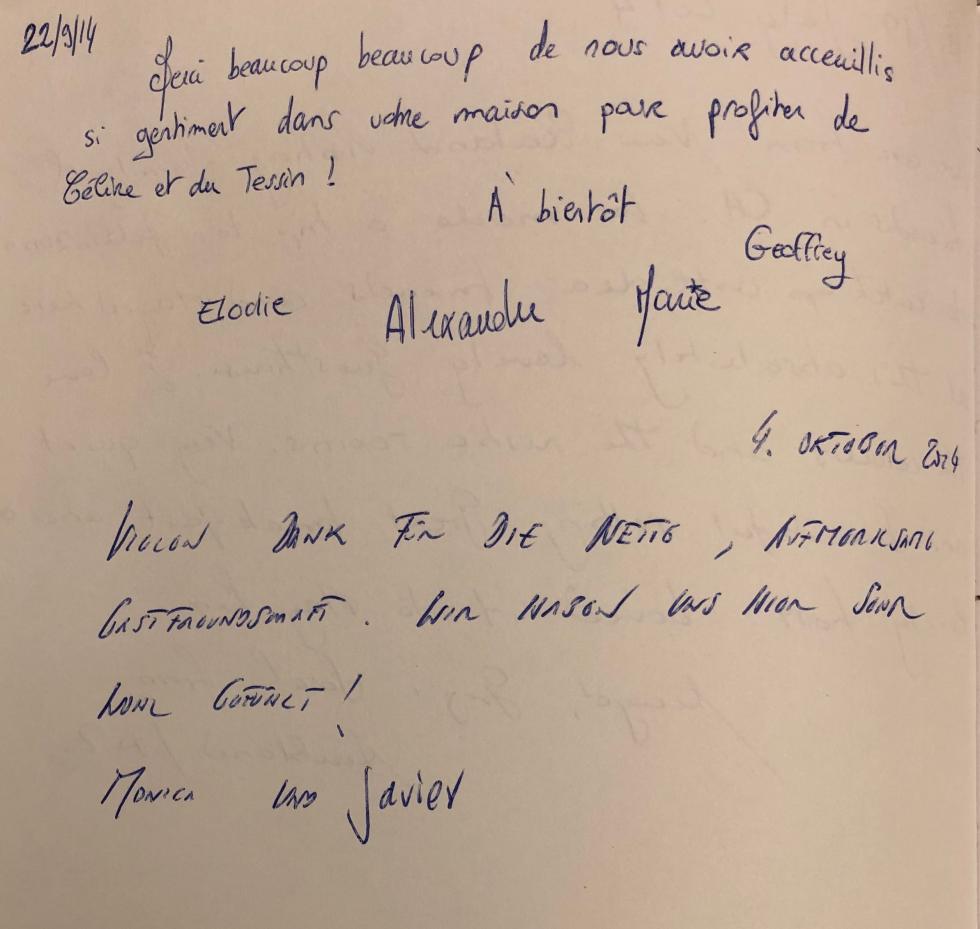 22/9/14
Merci beaucoup beaucoup de nous avoir acceuillis
si gentiment dans votre maison pour profiter de
Céline et du Tessin !
À bientôt
Geoffrey
Elodie Alexandre Marie
4. OKTOBER 2014
VIELEN DANK FÜR DIE NETTE, AUFMERKSAME
GASTFREUNDSCHAFT. WIR HABEN UNS HIER SEHR
WOHL GEFÜHLT!
MONICA UND Javier